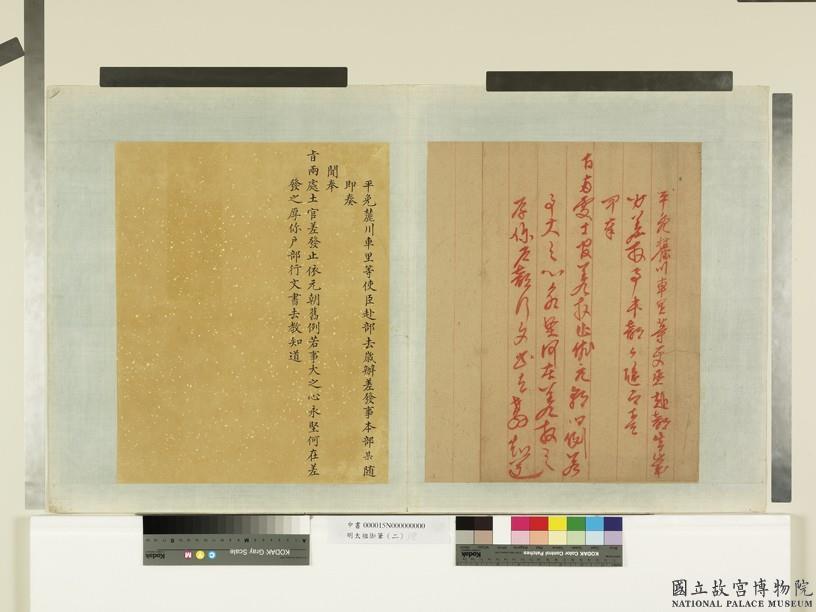 平免麓川車里等使臣赴部去歲
辦差發事本部某隨即奏
聞奉
旨兩處土官差發止依元朝舊例若
事大之心永堅何在差發之
厚你戶部行文書去教知道
平免麓川車里等使臣赴部去歲辦差發事本部某隨
即奏
聞奉
旨兩處土官差發止依元朝舊例若事大之心永堅何在差
發之厚你戶部行文書去教知道
中書 000015N000000000
明太祖御筆（二）
KODAK Gray Scale
C Y M
Kodak
KODAK Color Control Patches
國立故宮博物院
NATIONAL PALACE MUSEUM